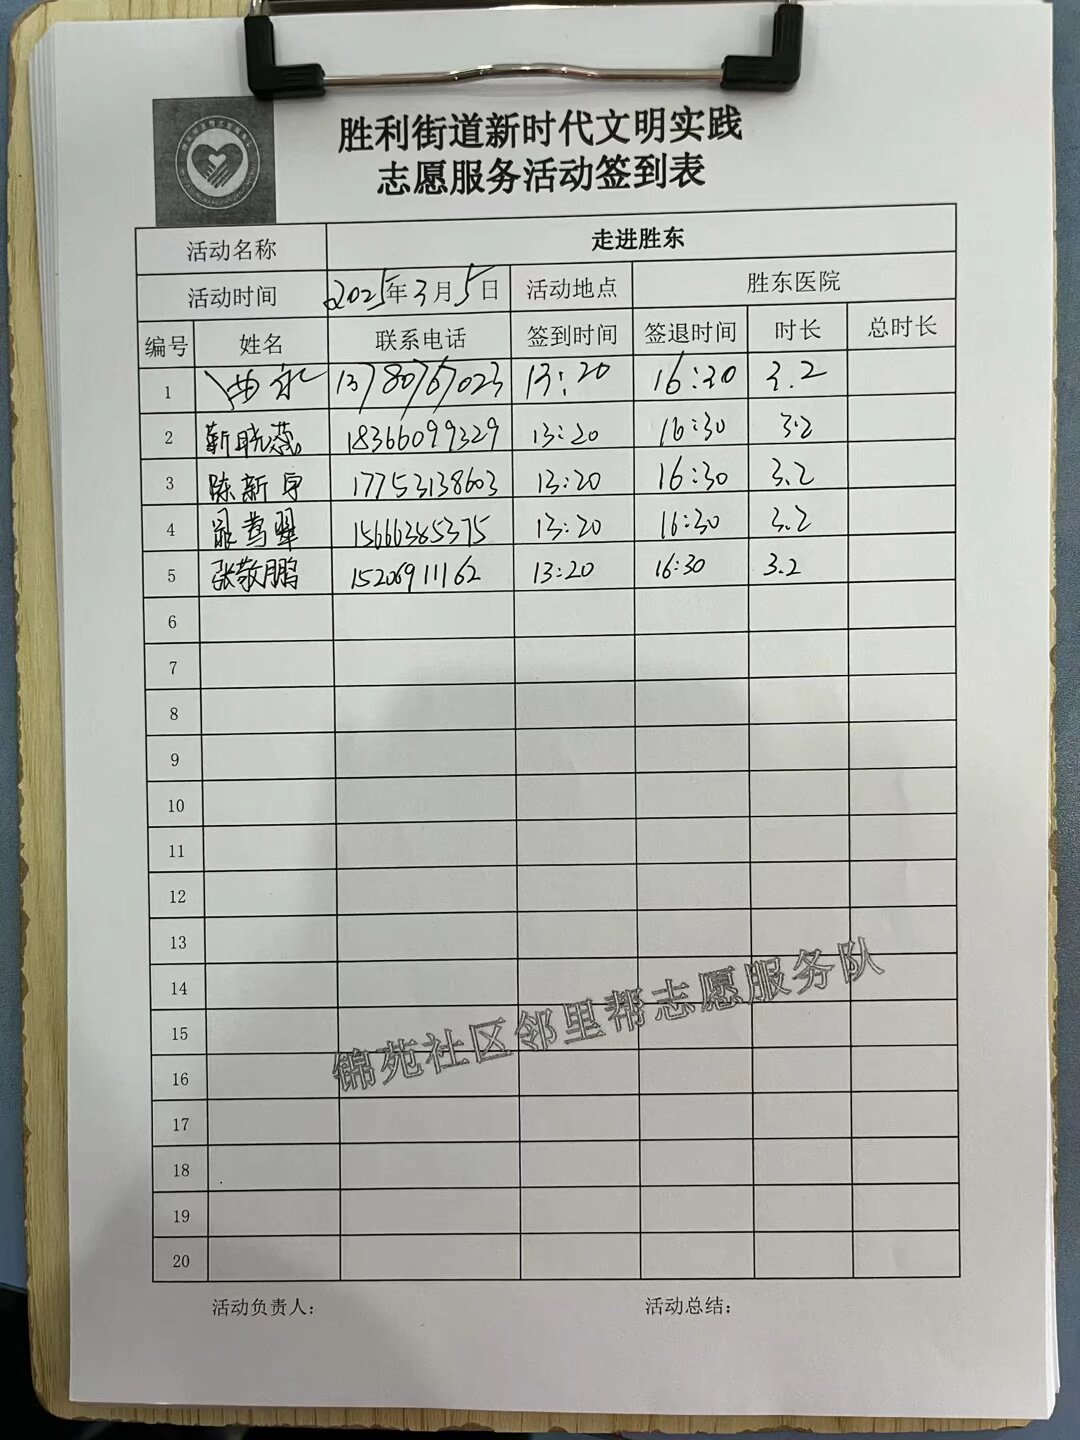 胜利街道新时代文明实践
志愿服务活动签到表
活动名称 走进胜东
活动时间 2025年3月5日 活动地点 胜东医院
编号 姓名 联系电话 签到时间 签退时间 时长 总时长
1 13780767023 13:20 16:30 3.2
2 靳晓燕 18366099329 13:20 16:30 3.2
3 陈新宇 17753138603 13:20 16:30 3.2
4 15666385375 13:20 16:30 3.2
5 张敬鹏 15206911162 13:20 16:30 3.2
6
7
8
9
10
11
12
13
14
15
16
17
18
19
20
锦苑社区邻里帮志愿服务队
活动负责人: 活动总结: